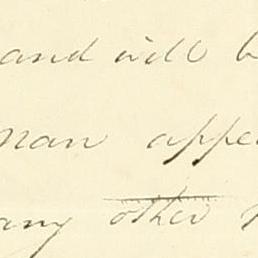 and will b
man appe
any other